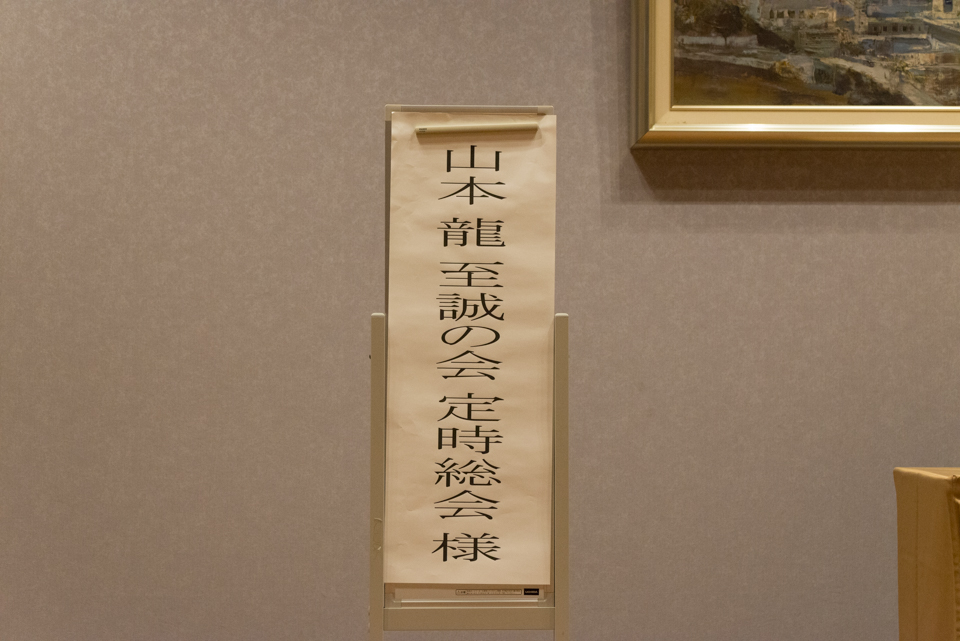 山本 龍 至誠の会 定時総会 様